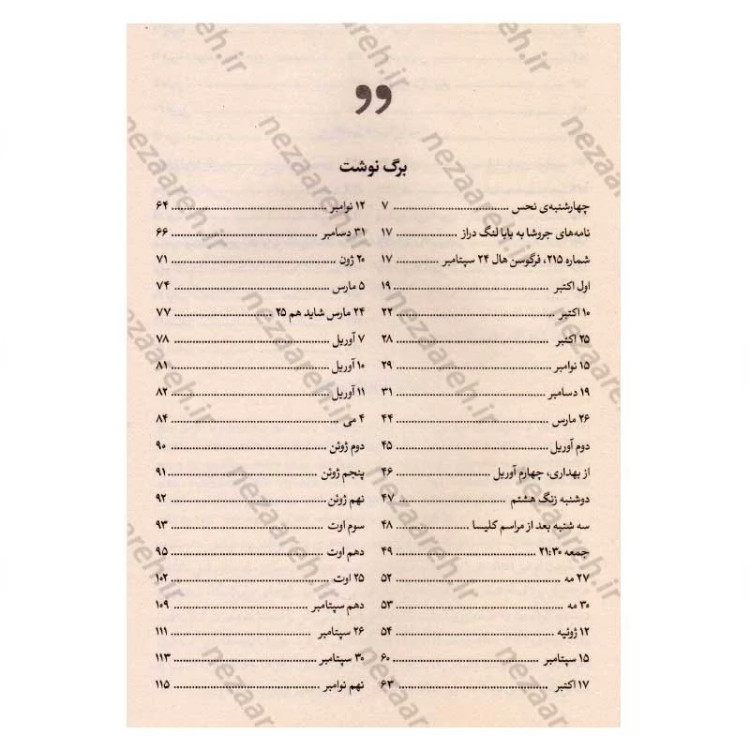 برگ نوشت
چهارشنبه‌ی نحس ........ ۷
نامه‌های جروشا به بابا لنگ دراز ........ ۱۷
شماره ۲۱۵، فرگوسن هال ۲۴ سپتامبر ........ ۱۷
اول اکتبر ........ ۱۹
۱۰ اکتبر ........ ۲۲
۲۵ اکتبر ........ ۲۸
۱۵ نوامبر ........ ۲۹
۱۹ دسامبر ........ ۳۱
۲۶ مارس ........ ۴۴
دوم آوریل ........ ۴۵
از بهداری، چهارم آوریل ........ ۴۶
دوشنبه زنگ هشتم ........ ۴۷
سه شنبه بعد از مراسم کلیسا ........ ۴۸
جمعه ۲۱:۳۰ ........ ۴۹
۲۷ مه ........ ۵۲
۳۰ مه ........ ۵۳
۱۲ ژوئیه ........ ۵۴
۱۵ سپتامبر ........ ۶۰
۱۷ اکتبر ........ ۶۳
۱۲ نوامبر ........ ۶۴
۳۱ دسامبر ........ ۶۶
۲۰ ژون ........ ۷۱
۵ مارس ........ ۷۴
۲۴ مارس شاید هم ۲۵ ........ ۷۷
۷ آوریل ........ ۷۸
۱۰ آوریل ........ ۸۱
۱۱ آوریل ........ ۸۲
۴ می ........ ۸۴
دوم ژوئن ........ ۹۰
پنجم ژوئن ........ ۹۱
نهم ژوئن ........ ۹۲
سوم اوت ........ ۹۳
دهم اوت ........ ۹۵
۲۵ اوت ........ ۱۰۲
دهم سپتامبر ........ ۱۰۹
۲۶ سپتامبر ........ ۱۱۱
۳۰ سپتامبر ........ ۱۱۳
نهم نوامبر ........ ۱۱۵
nezaareh.ir